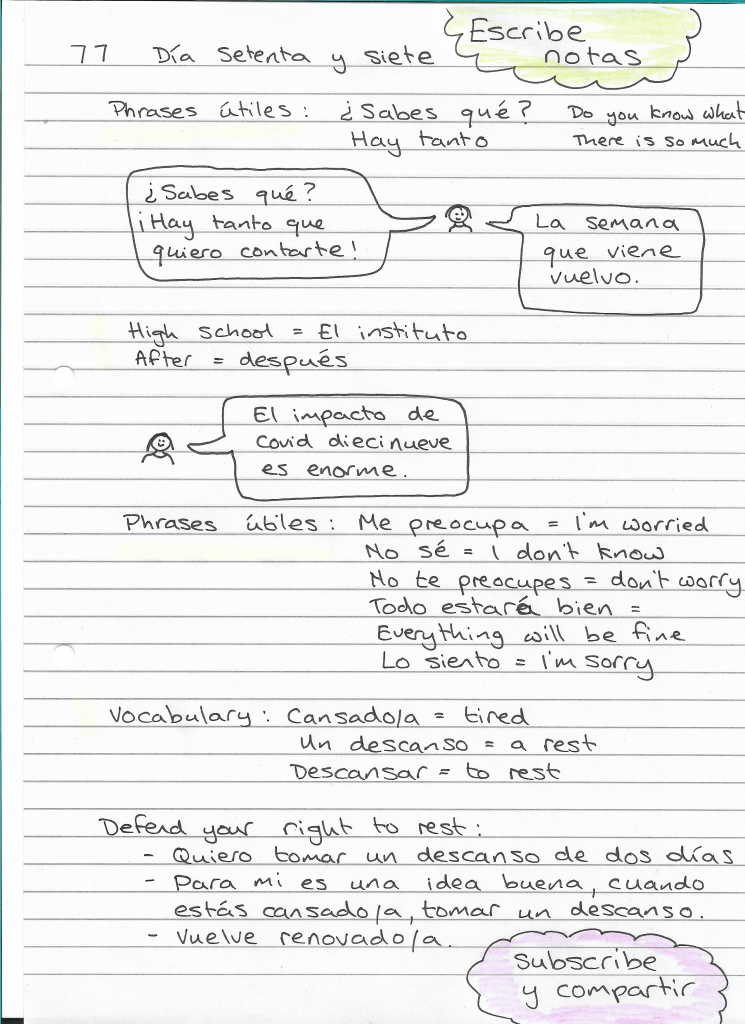 77 Día Setenta y siete
Escribe
notas
Phrases útiles: ¿Sabes qué? Do you know what
Hay tanto There is so much
¿Sabes qué?
¡Hay tanto que
quiero contarte!
La semana
que viene
vuelvo.
High school = El instituto
After = después
El impacto de
covid diecinueve
es enorme.
Phrases útiles: Me preocupa = I'm worried
No sé = I don't know
No te preocupes = don't worry
Todo estará bien =
Everything will be fine
Lo siento = I'm sorry
Vocabulary: Cansado/a = tired
Un descanso = a rest
Descansar = to rest
Defend your right to rest:
- Quiero tomar un descanso de dos días
- Para mi es una idea buena, cuando
estás cansado/a, tomar un descanso.
- Vuelve renovado/a.
Subscribe
y compartir